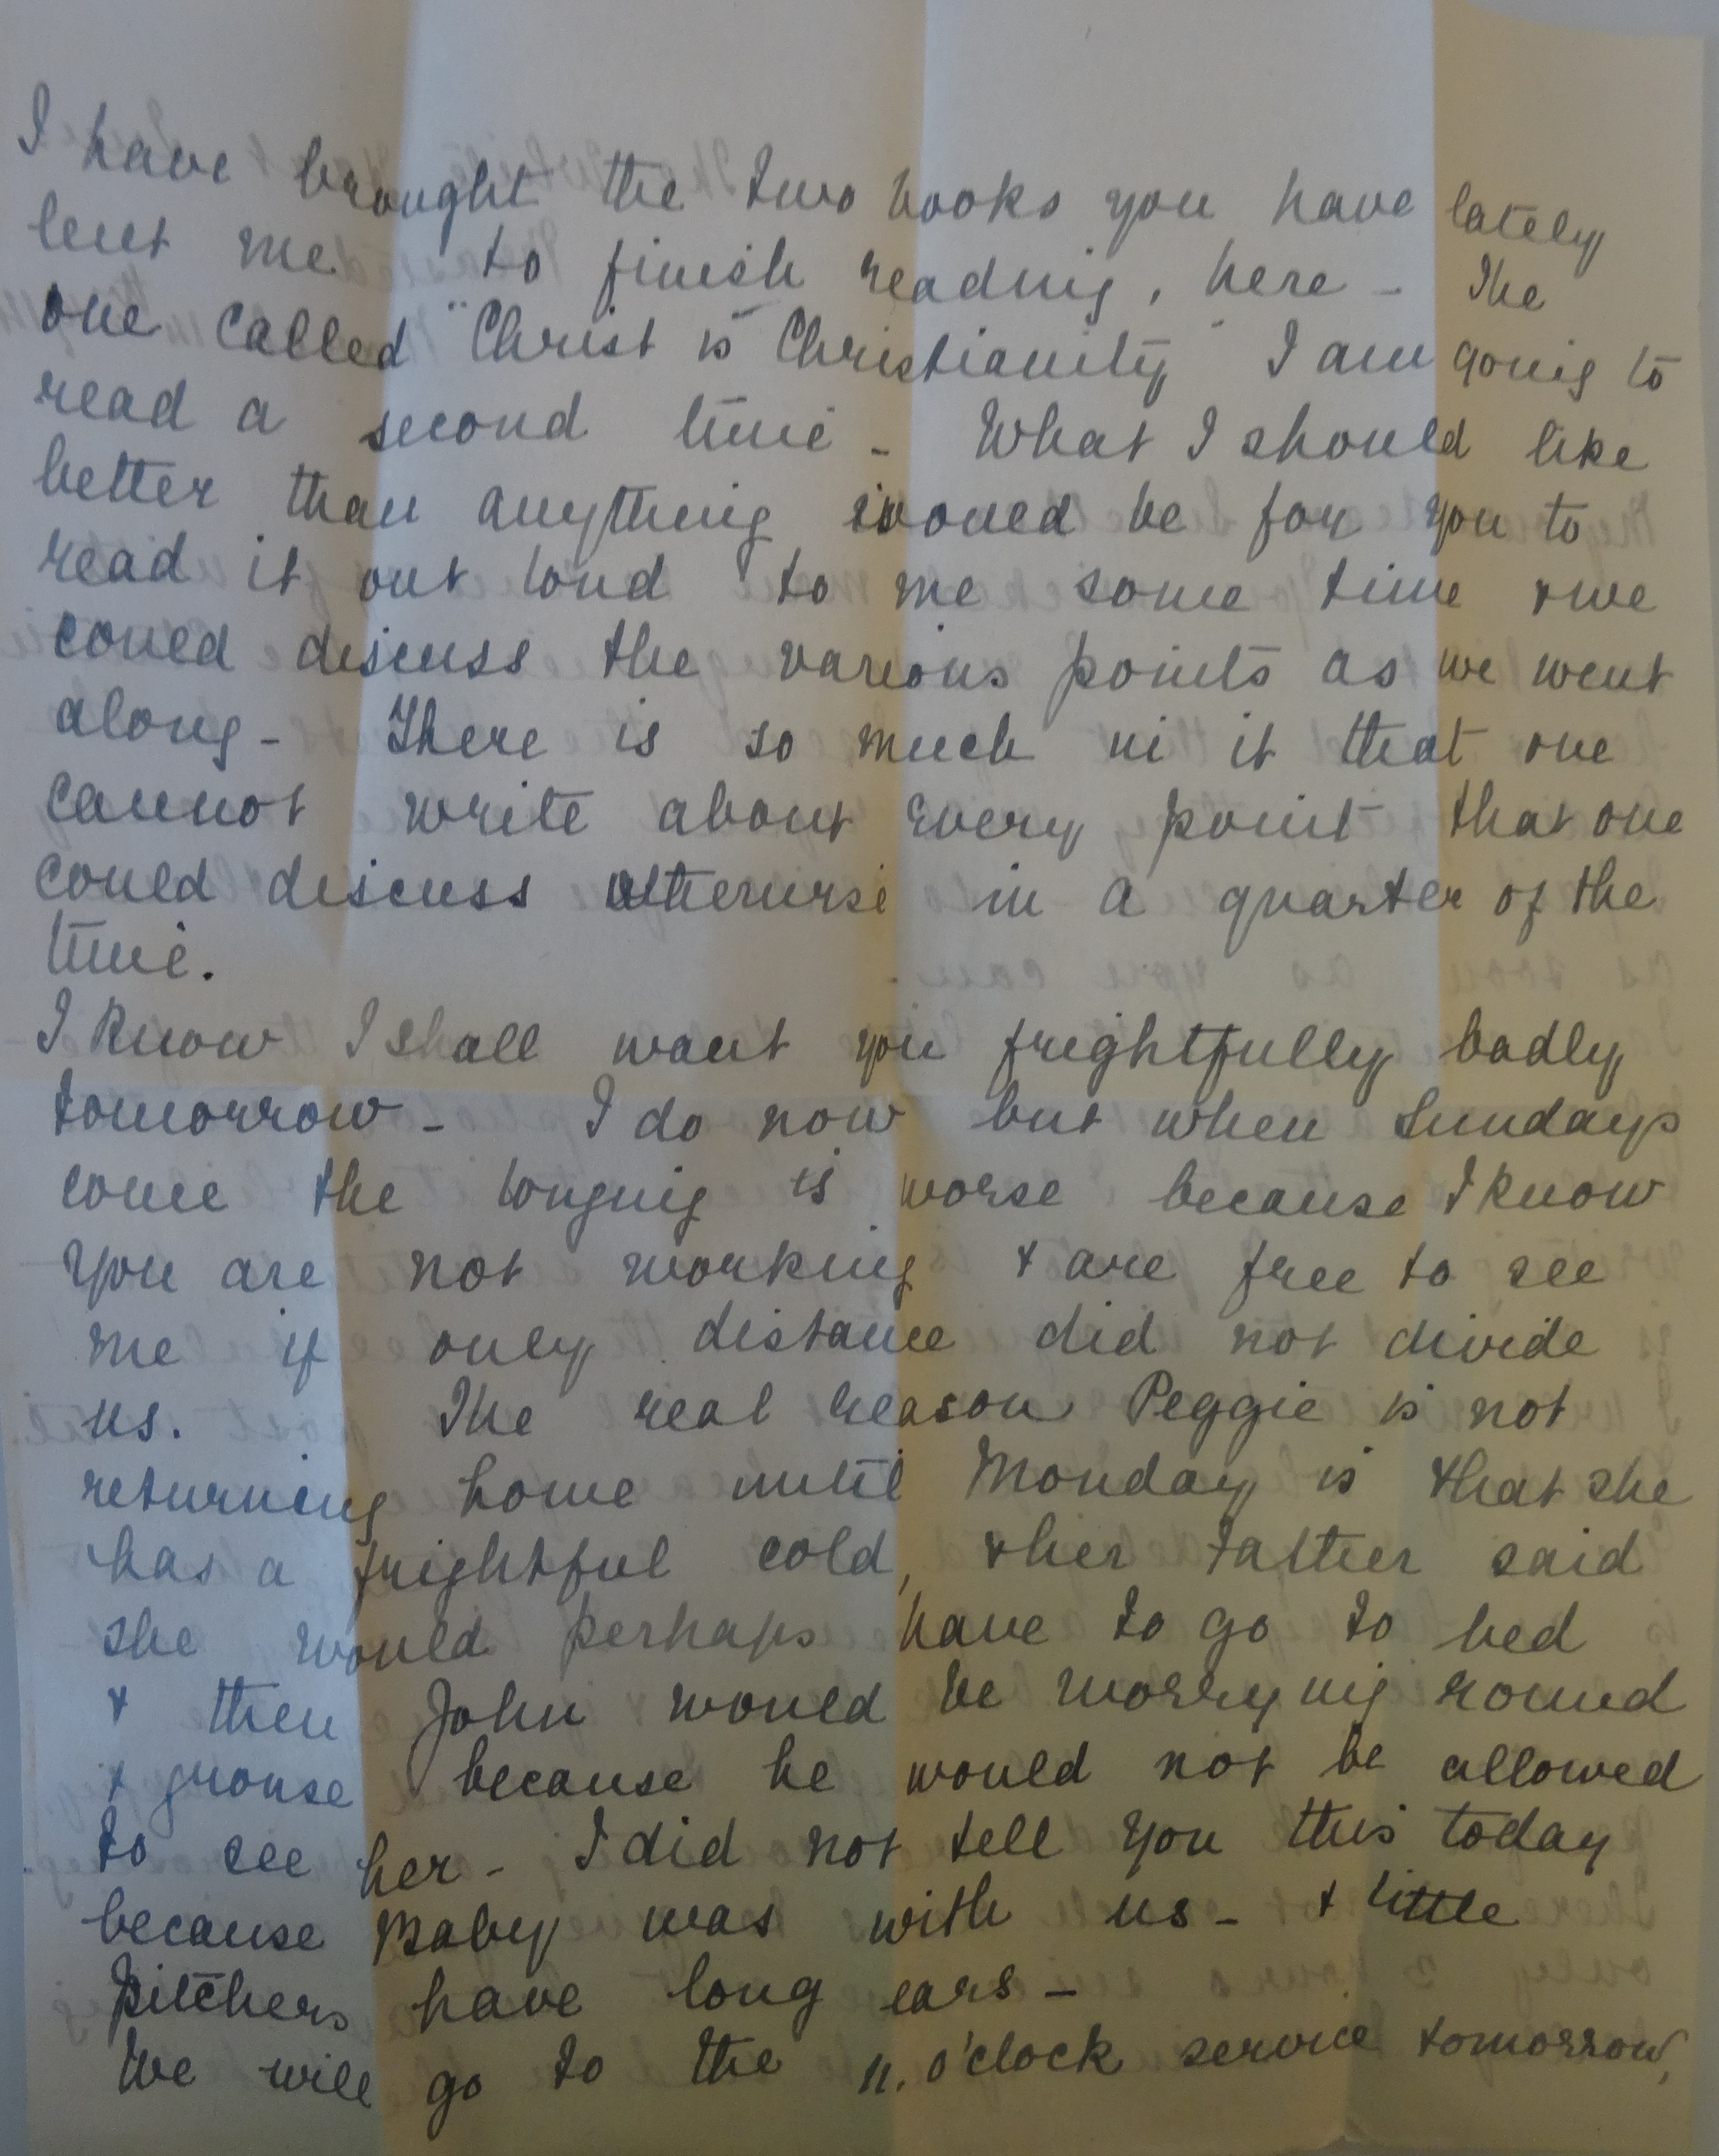 I have brought the two books you have lately
lent me to finish reading, here - The
one called "Christ is Christianity" I am going to
read a second time - What I should like
better than anything would be for you to
read it out loud to me some time & we
could discuss the various points as we went
along - There is so much in it that one
cannot write about every point that one
could discuss otherwise in a quarter of the
time.
I know I shall want you frightfully badly
tomorrow - I do now but when Sundays
come the longing is worse because I know
you are not working & are free to see
me if only distance did not divide
us. The real reason Peggie is not
returning home until Monday is that she
has a frightful cold, & her Father said
she would perhaps have to go to bed
& then John would be worrying round
& grouse because he would not be allowed
to see her - I did not tell you this today
because Baby was with us - & little
pitchers have long ears -
We will go to the 11. o'clock service tomorrow,